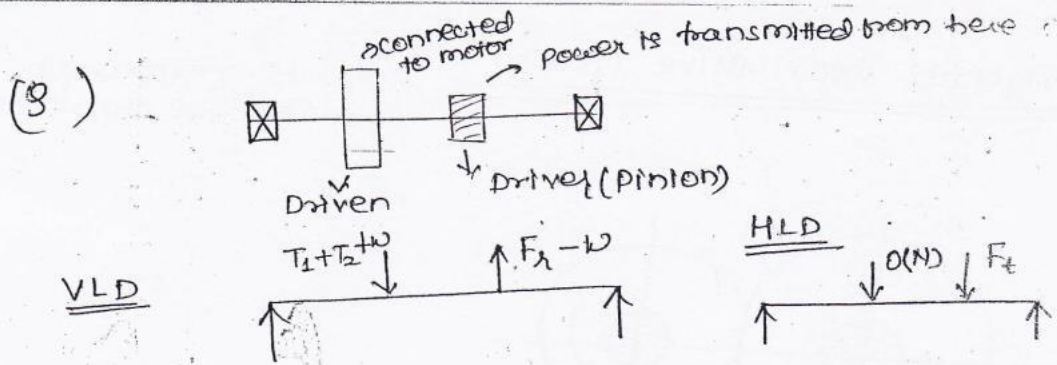 connected
to motor
Power is transmitted from here
(9)
Driven
Driver (Pinion)
VLD
T₁+T₂+w
Fᵣ-w
HLD
O(N)
Fₜ